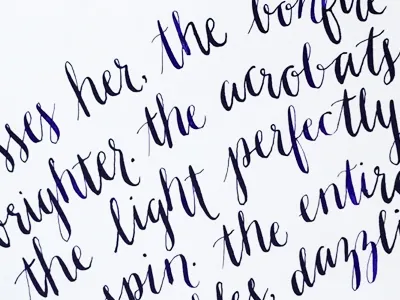 sses her, the bonfire
brighter. the acrobats
the light perfectly
spin. the entire
les, dazzli